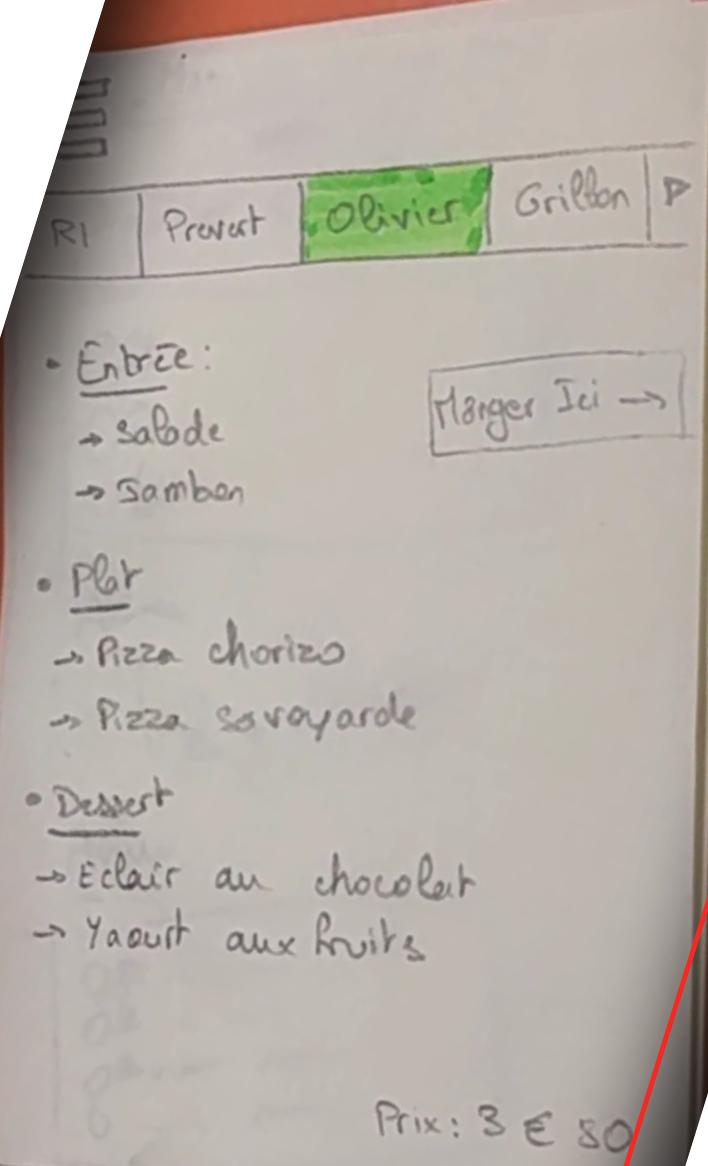 R1 Prevert Olivier Grillon
Entrée:
Manger Ici →
→ Salade
→ Jambon
Plat
→ Pizza chorizo
→ Pizza savoyarde
Dessert
→ Eclair au chocolat
→ Yaourt aux fruits
Prix: 3 € 80